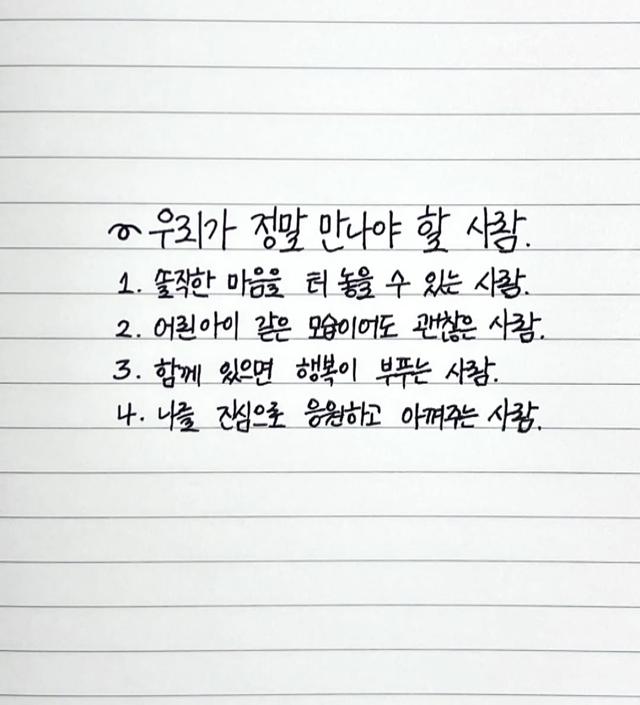 우리가 정말 만나야 할 사람.
1. 솔직한 마음을 터 놓을 수 있는 사람.
2. 어린아이 같은 모습이어도 괜찮은 사람.
3. 함께 있으면 행복이 부푸는 사람.
4. 나를 진심으로 응원하고 아껴주는 사람.